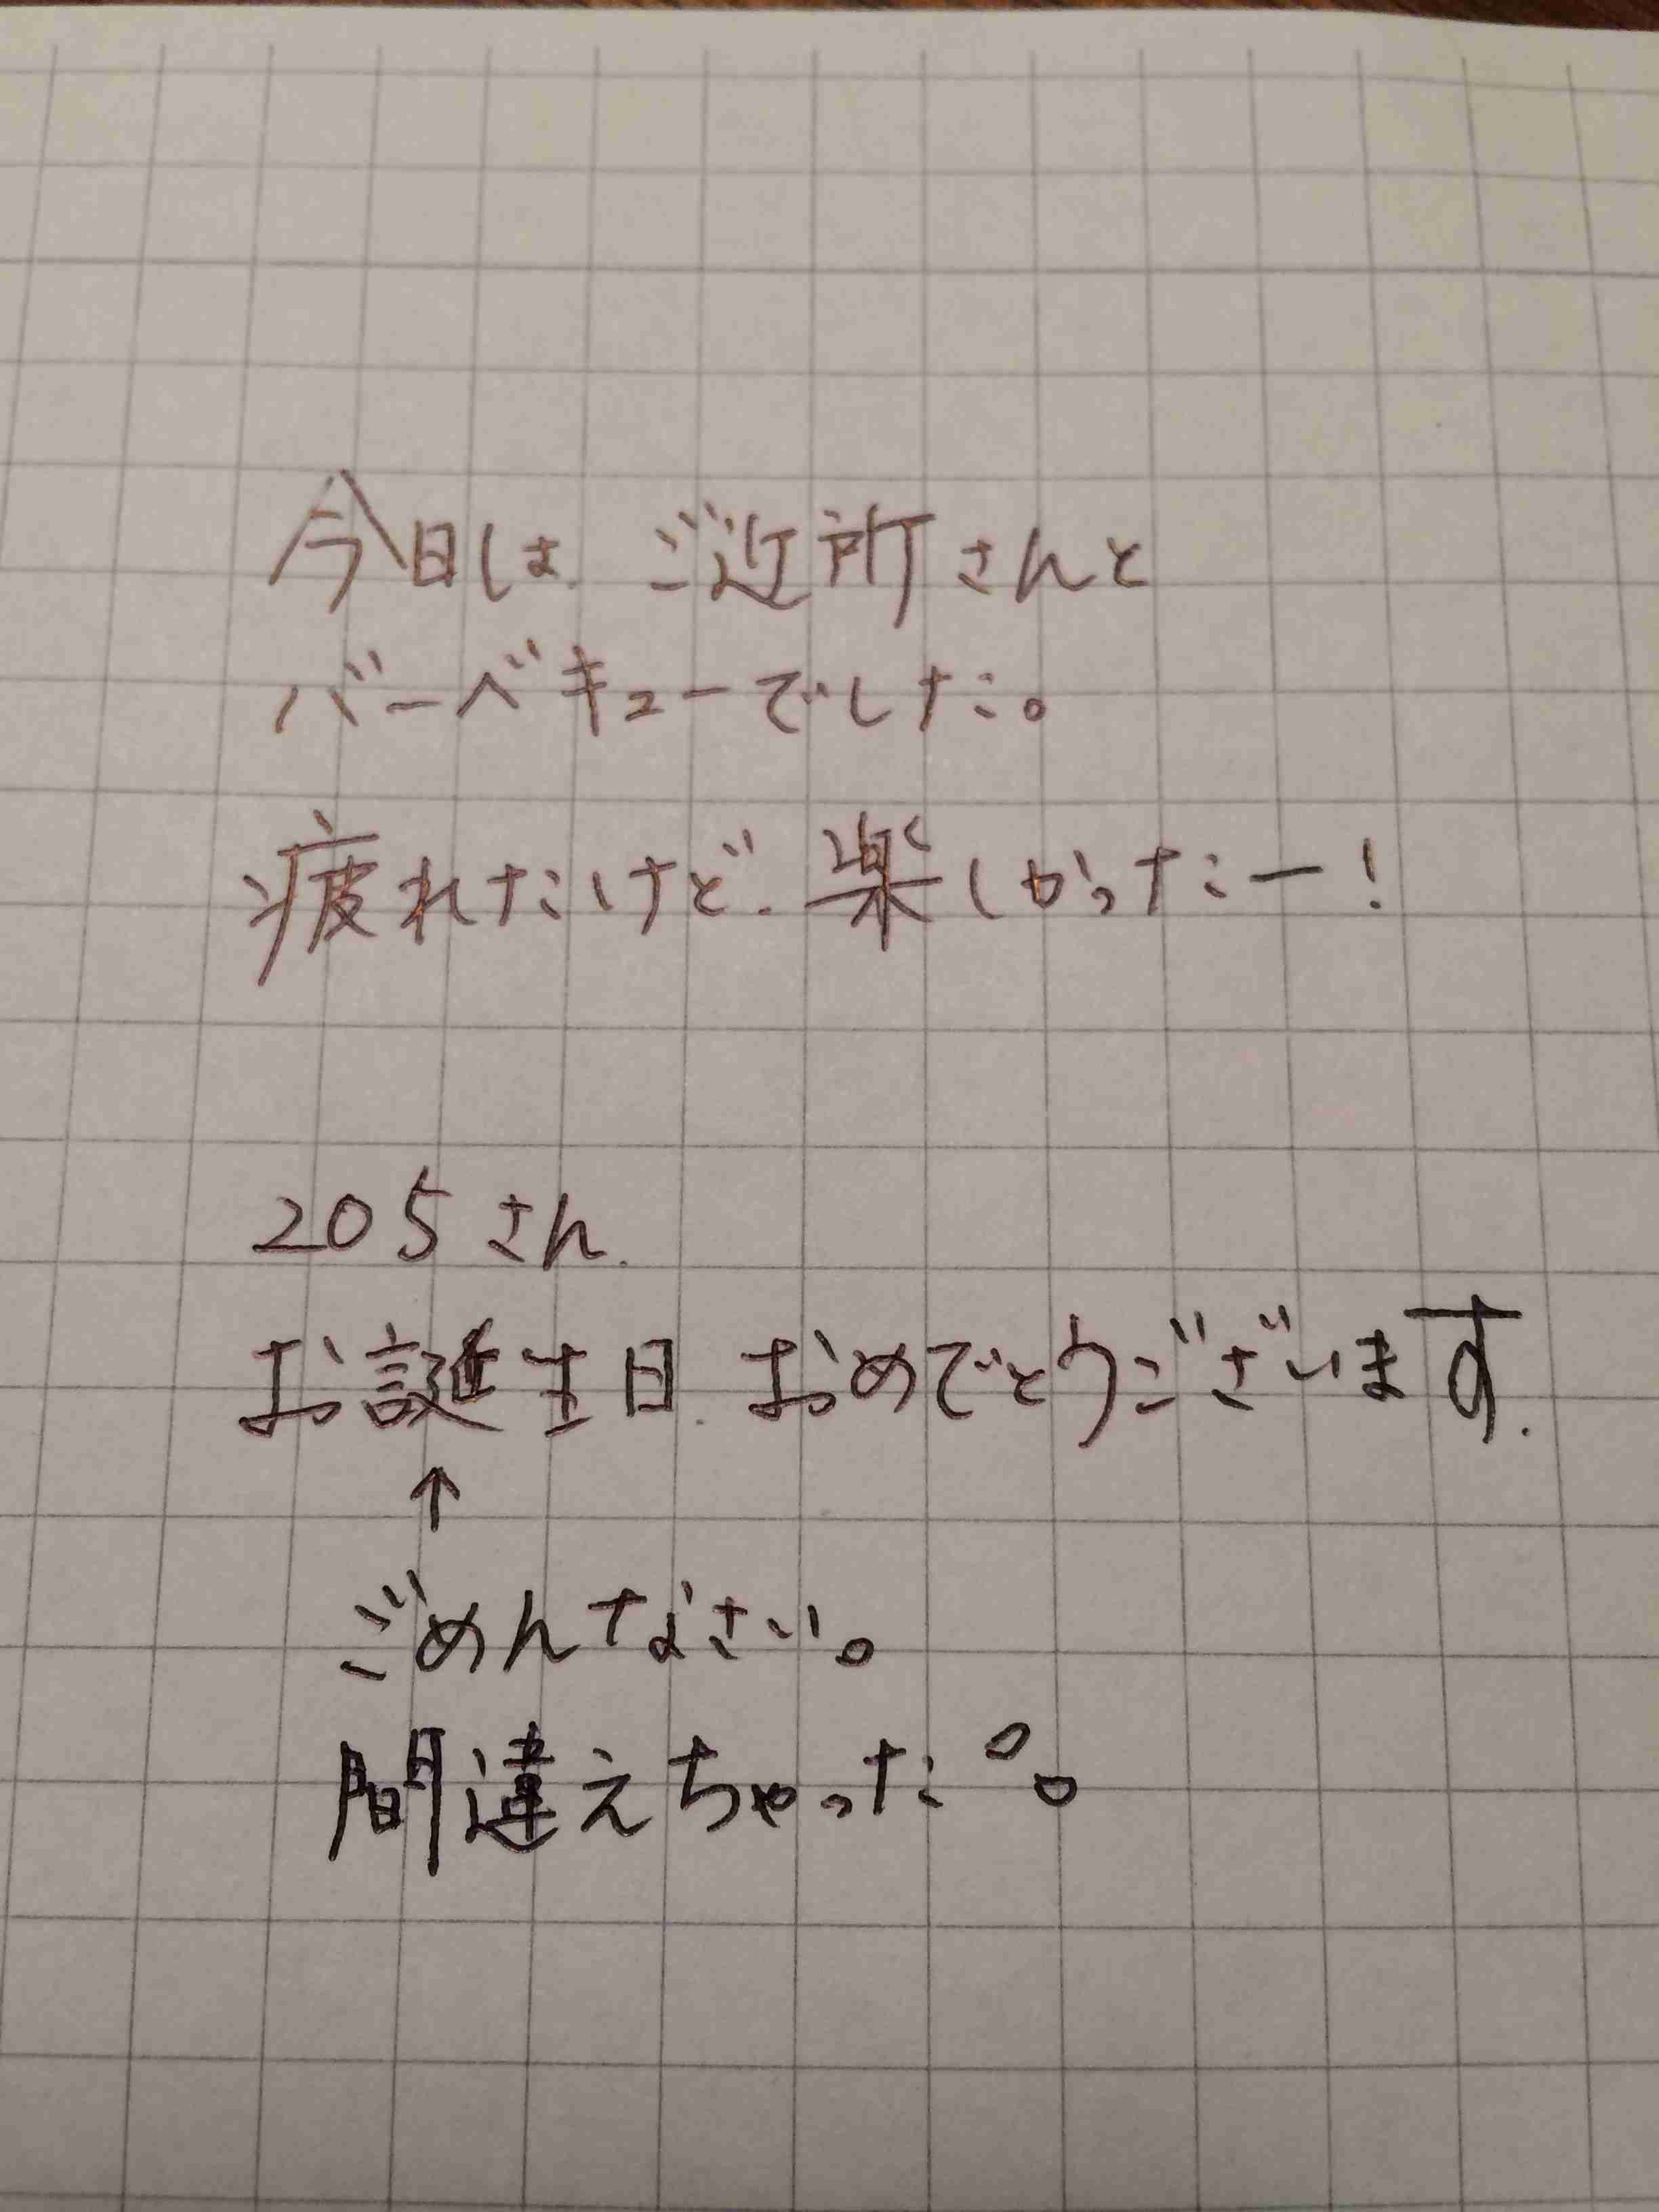 今日は、ご近所さんと
バーベキューでした。
疲れたけど、楽しかったー!
205さん、
お誕生日、おめでとうございます、
↑
ごめんなさい。
間違えちゃった°。